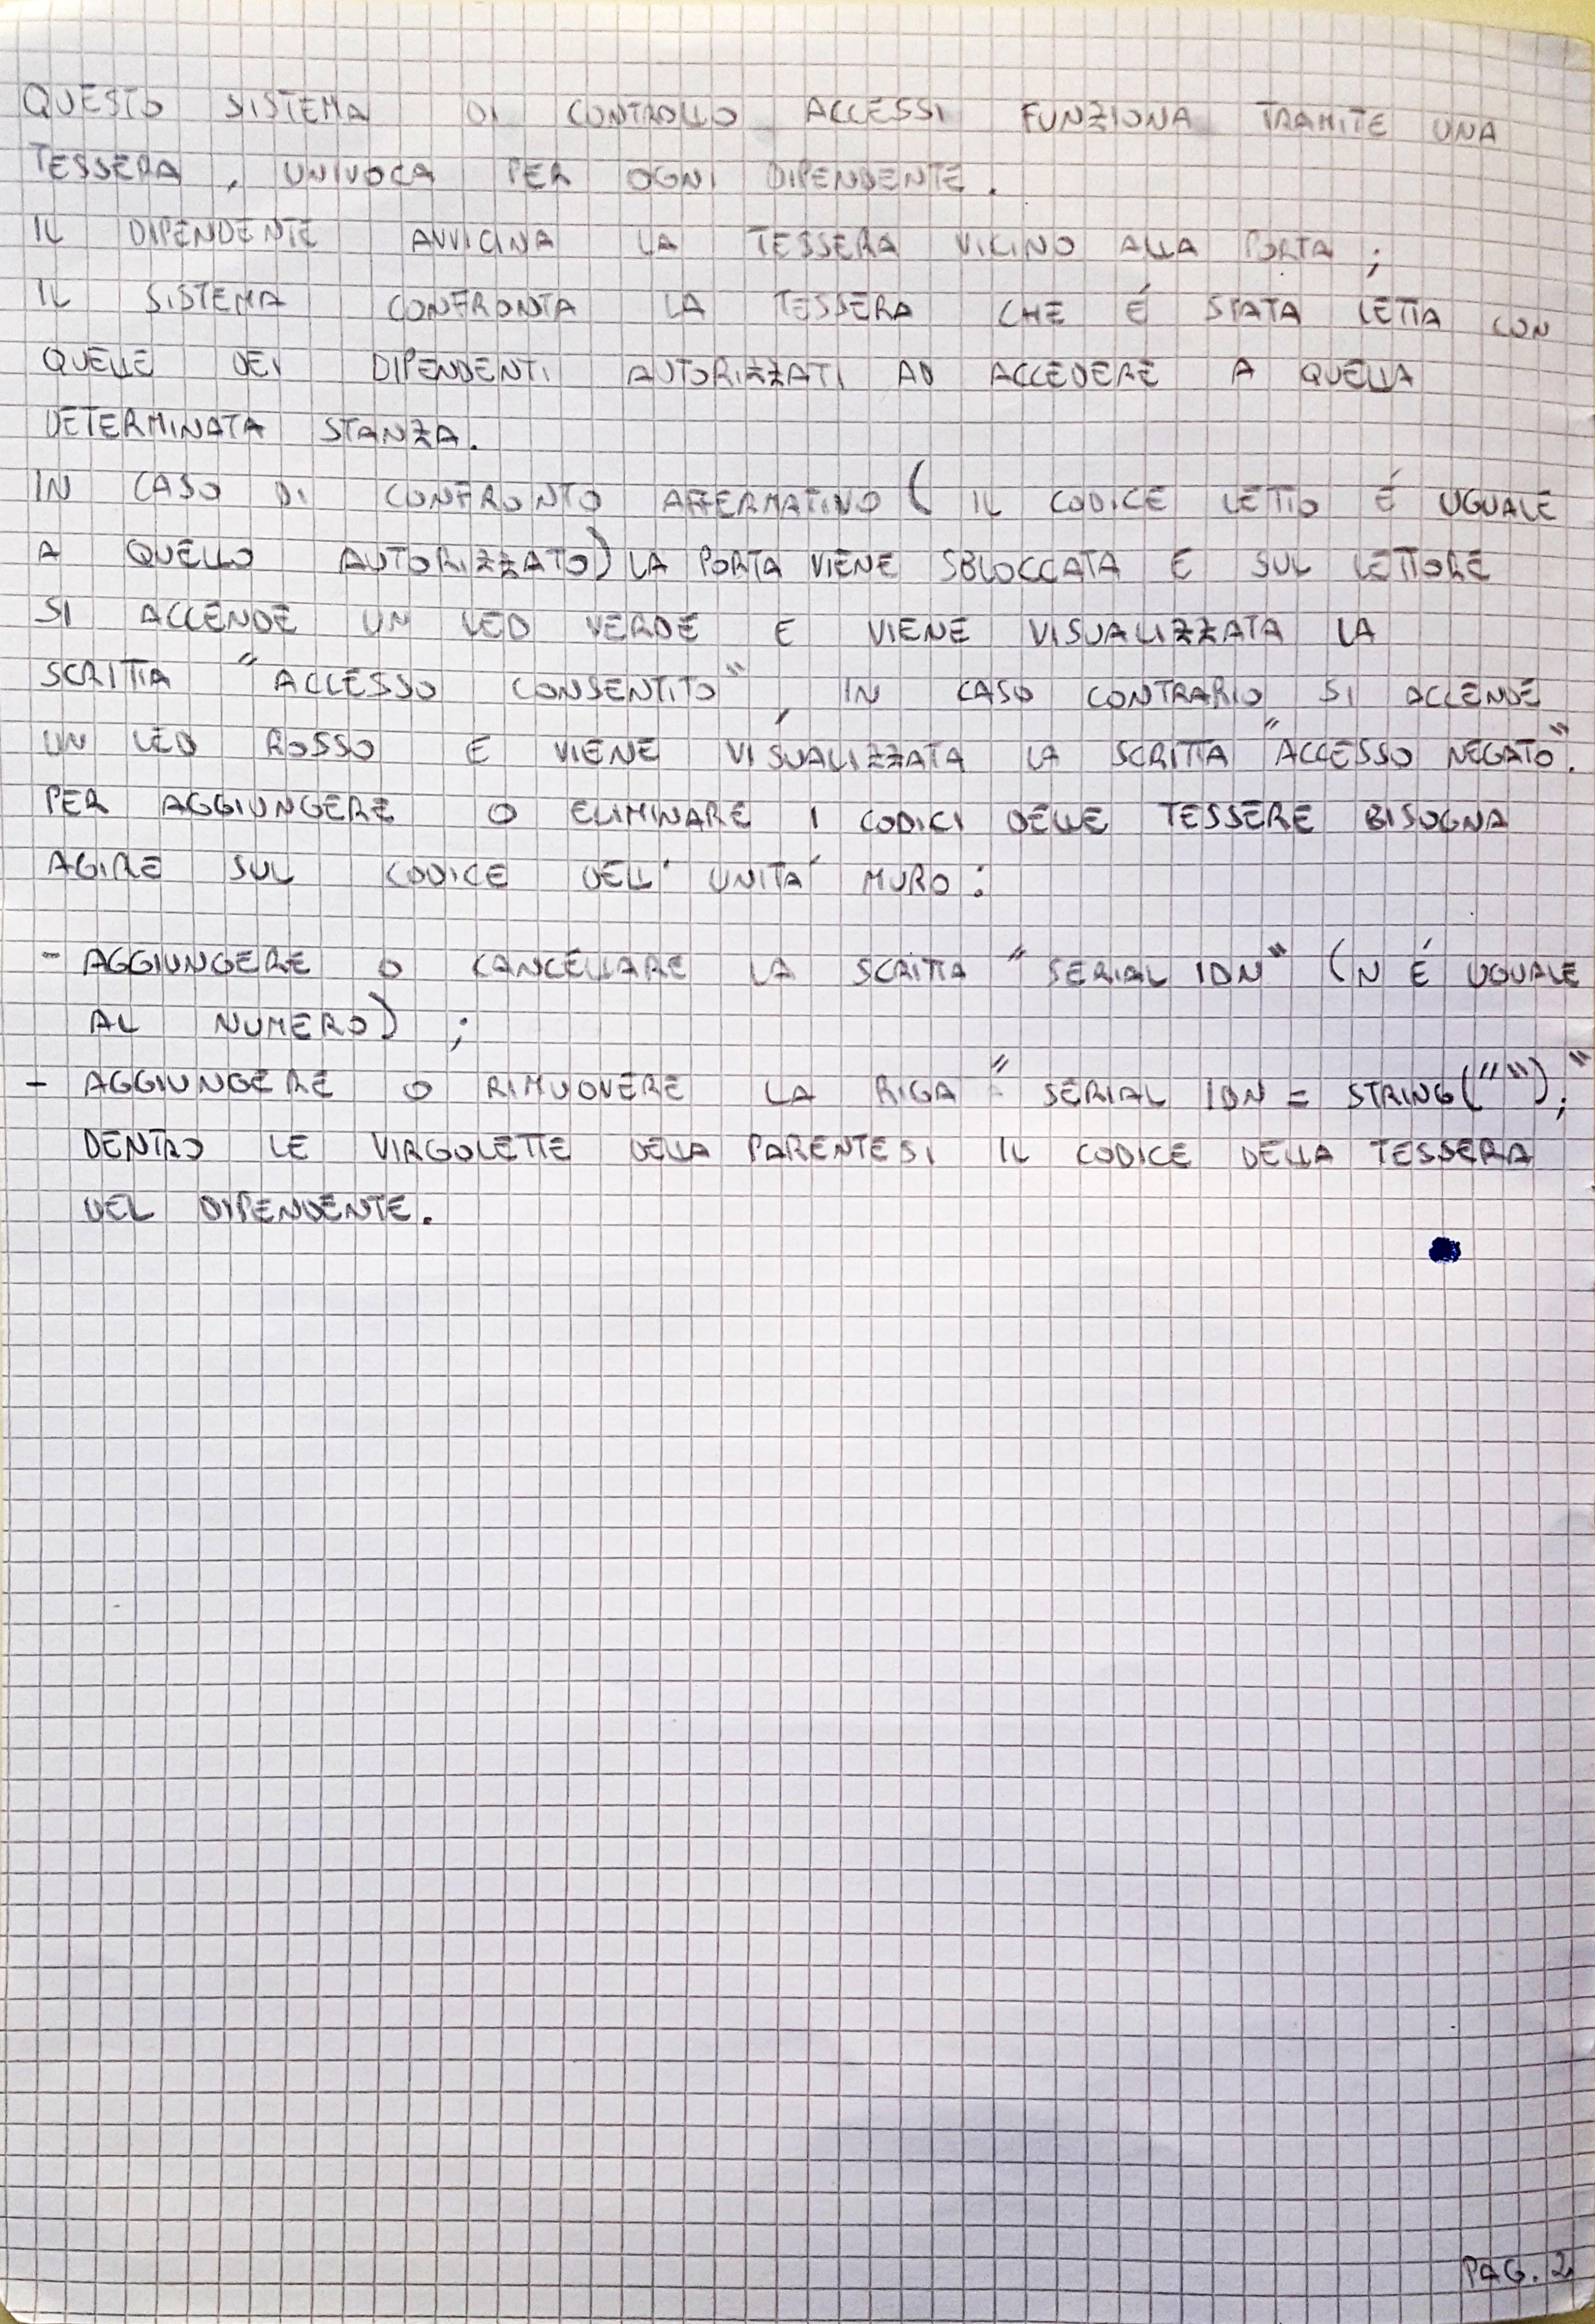 QUESTO SISTEMA DI CONTROLLO ACCESSI FUNZIONA TRAMITE UNA
TESSERA, UNIVOCA PER OGNI DIPENDENTE.
IL DIPENDENTE AVVICINA LA TESSERA VICINO ALLA PORTA;
IL SISTEMA CONFRONTA LA TESSERA CHE É STATA LETTA CON
QUELLE DEI DIPENDENTI AUTORIZZATI AD ACCEDERE A QUELLA
DETERMINATA STANZA.
IN CASO DI CONFRONTO AFFERMATIVO (IL CODICE LETTO É UGUALE
A QUELLO AUTORIZZATO) LA PORTA VIENE SBLOCCATA E SUL LETTORE
SI ACCENDE UN LED VERDE E VIENE VISUALIZZATA LA
SCRITTA "ACCESSO CONSENTITO", IN CASO CONTRARIO SI ACCENDE
UN LED ROSSO E VIENE VISUALIZZATA LA SCRITTA "ACCESSO NEGATO".
PER AGGIUNGERE O ELIMINARE I CODICI DELLE TESSERE BISOGNA
AGIRE SUL CODICE DELL'UNITA' MURO:
- AGGIUNGERE O CANCELLARE LA SCRITTA "SERIAL IDN" (N É UGUALE
AL NUMERO);
- AGGIUNGERE O RIMUOVERE LA RIGA "SERIAL IDN = STRING("");"
DENTRO LE VIRGOLETTE DELLA PARENTESI IL CODICE DELLA TESSERA
DEL DIPENDENTE.
PAG. 2